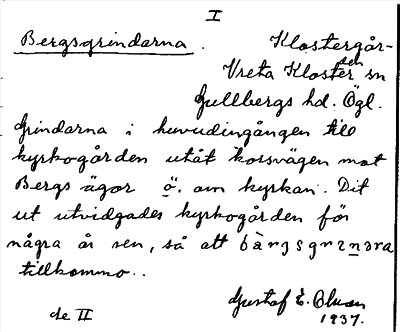 I
Bergsgrindarna. Klostergår-
den
Vreta Kloster sn
Gullbergs hd. Ögl.
Grindarna i huvudingången till
kyrkogården utåt korsvägen mot
Bergs ägor ö. om kyrkan. Dit
ut utvidgades kyrkogården för
några år sen, så att
tillkommo..
Gustaf E. Olsson
de II 1937.